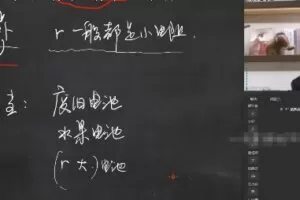 r 一般都是小电阻.
注: 废旧电池
水果电池
(r 大) 电池